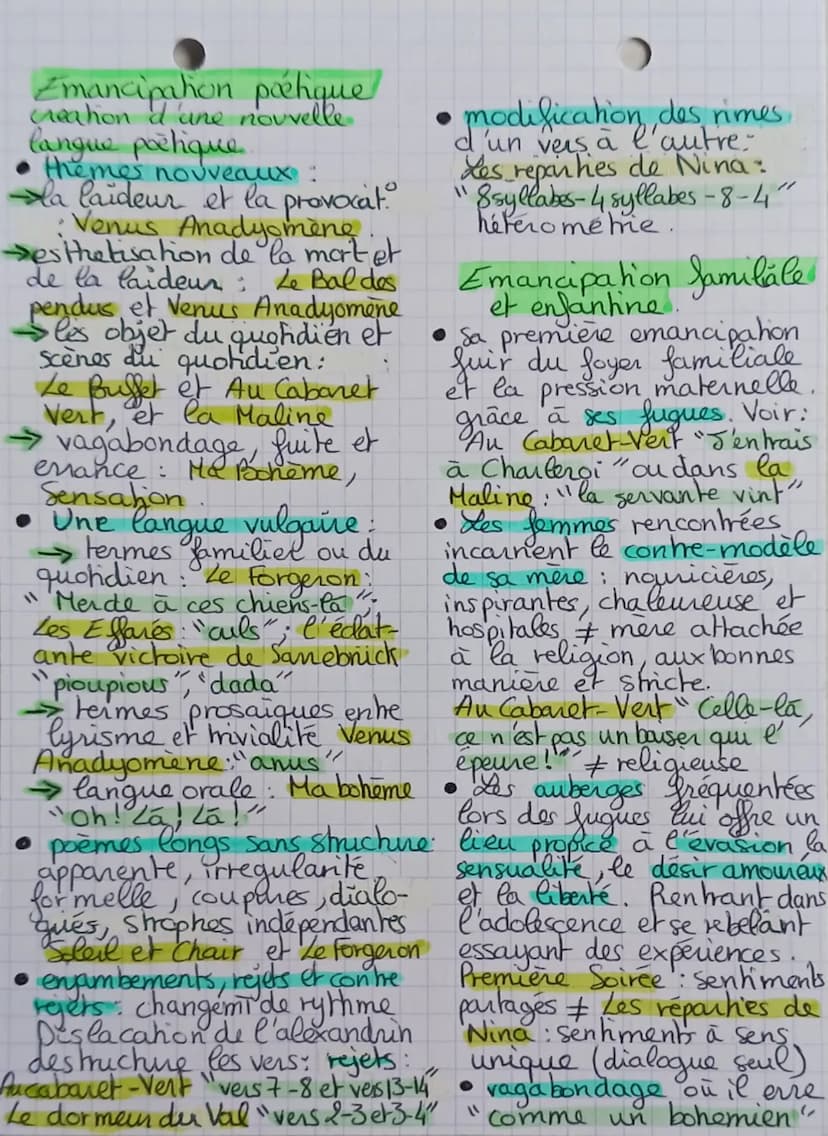 Emancipation poétique
création d'une nouvelle
langue poétique.
• thèmes nouveaux :
→ la laideur et la provocat°
: Venus Anadyomène.
→ esthetisation de la mort et
de la laideur : Le Bal des
pendus et Venus Anadyomène
→ les objet du quotidien et
scènes du quotidien :
Le Buffet et Au Cabaret
Vert, et la Maline
→ vagabondage, fuite et
errance : Ma Bohème,
Sensation
• Une langue vulgaire :
→ termes familiet ou du
quotidien : Le Forgeron :
"Merde à ces chiens-là" ;
Les Effarés : "culs" ; l'éclat-
ante victoire de Sarrebrück
"pioupious", "dada"
→ termes prosaïques entre
lyrisme et trivialité Venus
Anadyomène : "anus"
→ langue orale : Ma bohème
"Oh! Là! Là!"
• poèmes longs sans structure
apparente, irregularité
formelle, coupures, dialo-
gués, strophes indépendantes
Soleil et Chair et Le Forgeron
• enjambements, rejets et contre
rejets : changemt de rythme
Dislacation de l'alexandrin
destructure les vers : rejets :
Au cabaret-Vert "vers 7-8 et vers 13-14"
Le dormeur du Val "vers 2-3 et 3-4"
• modification des rimes
d'un vers à l'autre :
Les reparties de Nina :
"8 syllabes - 4 syllabes - 8 - 4"
hétérométrie.
Emancipation familiale
et enfantine.
• Sa première emancipation
fuir du foyer familiale
et la pression maternelle.
grâce à ses fugues. Voir :
Au Cabaret-Vert "J'entrais
à Charleroi" ou dans la
Maline : "la servante vint"
• Les femmes rencontrées
incarnent le contre-modèle
de sa mère : nourricières,
inspirantes, chaleureuse et
hospitales ≠ mère attachée
à la religion, aux bonnes
manière et stricte.
Au Cabaret-Vert "Celle-là,
ce n'est pas un baiser qui l'
épeure!" ≠ religieuse
• Les auberges fréquentées
lors des fugues lui offre un
lieu propice à l'évasion, la
sensualité, le désir amoureux
et la liberté. Rentrant dans
l'adolescence et se rebelant
essayant des expériences.
Première Soirée : sentiments
partagés ≠ Les réparties de
Nina : sentiments à sens
unique (dialogue seul)
• vagabondage où il erre
"comme un bohemien"